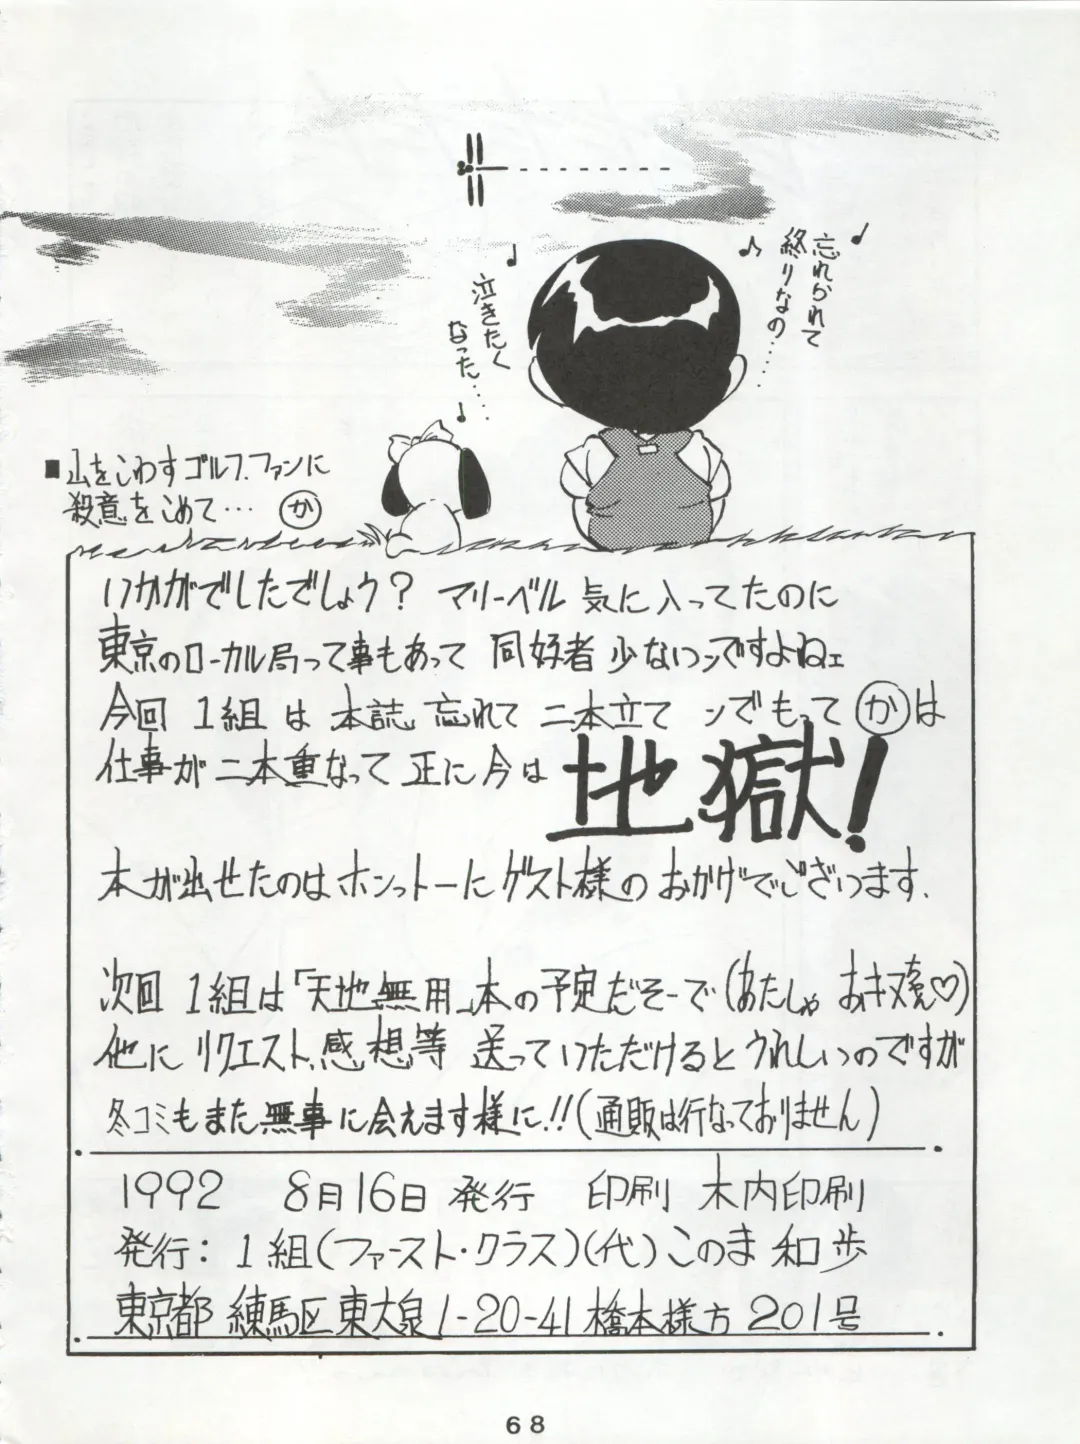 忘れられて
終りなの……
泣きたく
なった……
■山をこわすゴルフ・ファンに
殺意をこめて… か
いかがでしたでしょう？ マリーベル 気に入ってたのに
東京のローカル局って事もあって 同好者 少ないンですよねェ
今回 1組 は 本誌 忘れて 二本立て ンでもって かは
仕事が 二本重なって 正に 今は 地獄！
本が出せたのは ホンっトーに ゲスト様の おかげでございます.
次回 1組は「天地無用」本の予定だそーで(あたしゃ おキヌ莵♡)
他に リクエスト、感想等 送っていただけるとうれしいのですが
冬コミもまた無事に会えます様に!!(通販は行なっておりません)
1992 8月16日 発行 印刷 木内印刷
発行：1組(ファースト・クラス)(代)このま 和歩
東京都 練馬区東大泉1-20-41 橋本様方 201号
68